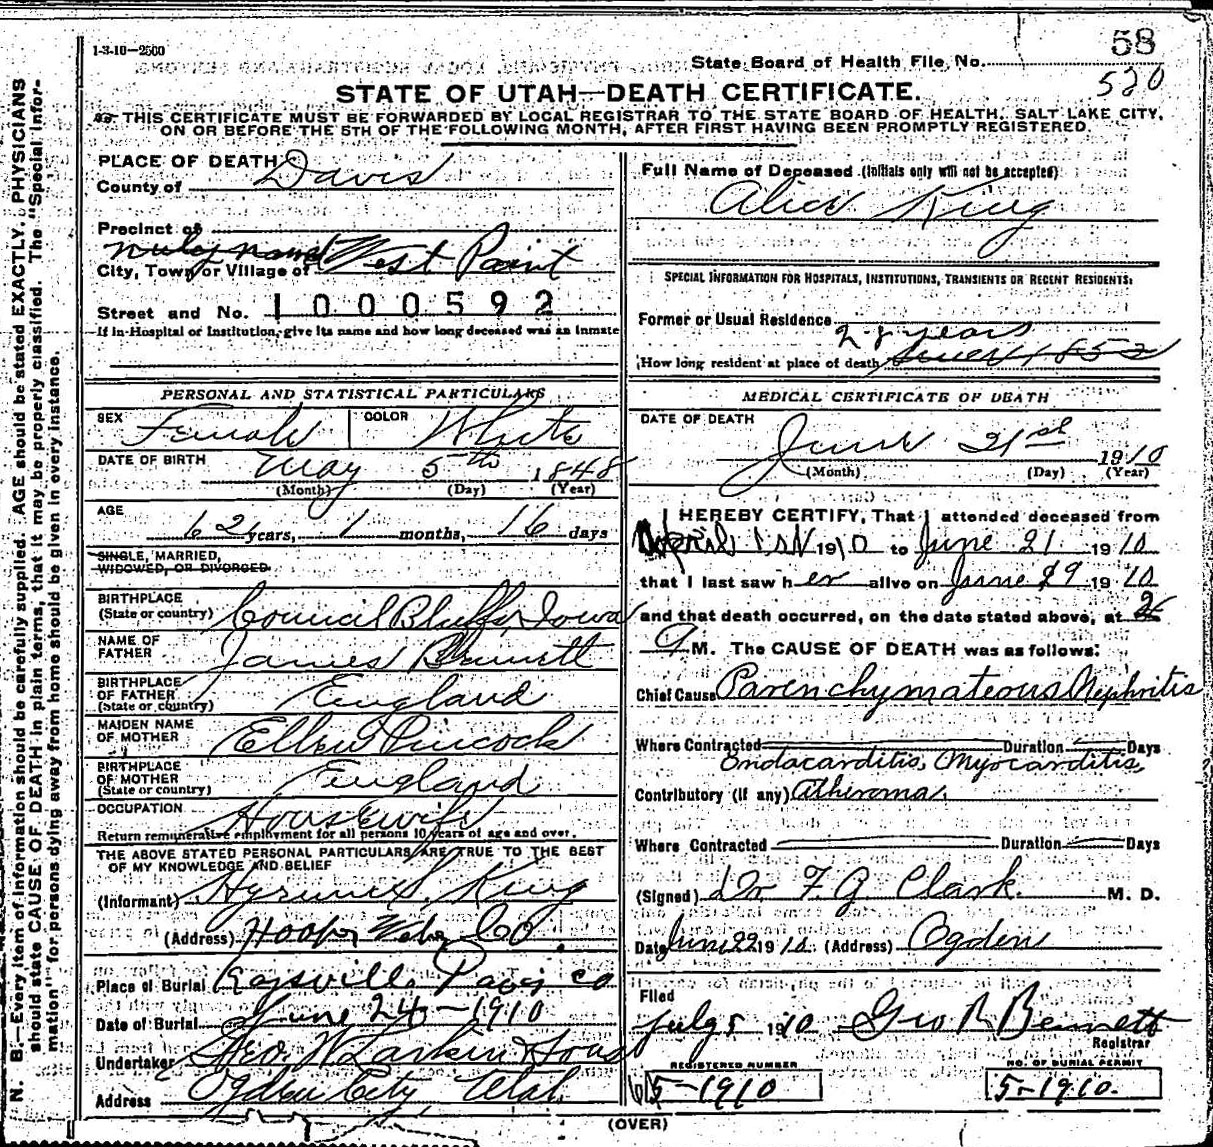 1-3-10—2500
58
State Board of Health File No.
520
STATE OF UTAH—DEATH CERTIFICATE.
THIS CERTIFICATE MUST BE FORWARDED BY LOCAL REGISTRAR TO THE STATE BOARD OF HEALTH, SALT LAKE CITY,
ON OR BEFORE THE 5TH OF THE FOLLOWING MONTH, AFTER FIRST HAVING BEEN PROMPTLY REGISTERED.
N. B.—Every item of information should be carefully supplied. AGE should be stated EXACTLY. PHYSICIANS
should state CAUSE OF DEATH in plain terms, that it may be properly classified. The "Special Infor-
mation" for persons dying away from home should be given in every instance.
PLACE OF DEATH
County of Davis
Precinct of
City, Town or Village of West Point
Street and No. 1000592
If in Hospital or Institution, give its name and how long deceased was an inmate
PERSONAL AND STATISTICAL PARTICULARS
SEX Female COLOR White
DATE OF BIRTH May 5th 1848
(Month) (Day) (Year)
AGE
62 years, 1 months, 16 days
SINGLE, MARRIED,
WIDOWED, OR DIVORCED
BIRTHPLACE
(State or country) Council Bluffs, Iowa
NAME OF
FATHER James Bennett
BIRTHPLACE
OF FATHER
(State or country) England
MAIDEN NAME
OF MOTHER Ellen Pincock
BIRTHPLACE
OF MOTHER
(State or country) England
OCCUPATION
Housewife
Return remunerative employment for all persons 10 years of age and over.
THE ABOVE STATED PERSONAL PARTICULARS ARE TRUE TO THE BEST
OF MY KNOWLEDGE AND BELIEF
(Informant) King
(Address) Hooper Weber Co.
Place of Burial Kaysville Davis Co
Date of Burial June 24—1910
Undertaker Geo. W. Larkin & Sons
Address Ogden City, Utah.
Full Name of Deceased (Initials only will not be accepted)
Alice King
SPECIAL INFORMATION FOR HOSPITALS, INSTITUTIONS, TRANSIENTS OR RECENT RESIDENTS:
Former or Usual Residence
28 years
How long resident at place of death since 1852
MEDICAL CERTIFICATE OF DEATH
DATE OF DEATH
June 21st 1910
(Month) (Day) (Year)
I HEREBY CERTIFY, That I attended deceased from
April 1st 1910 to June 21 1910
that I last saw her alive on June 19 1910
and that death occurred, on the date stated above, at 2
A M. The CAUSE OF DEATH was as follows:
Chief Cause Parenchymateous Nephritis
Where Contracted Duration Days
Endocarditis, Myocarditis,
Contributory (if any) Atheroma.
Where Contracted Duration Days
(Signed) Dr F. G. Clark. M. D.
Date June 22 1910 (Address) Ogden
Filed
July 5 1910 Geo R Bennett
Registrar
REGISTERED NUMBER
5-1910
NO. OF BURIAL PERMIT
5-1910.
(OVER)